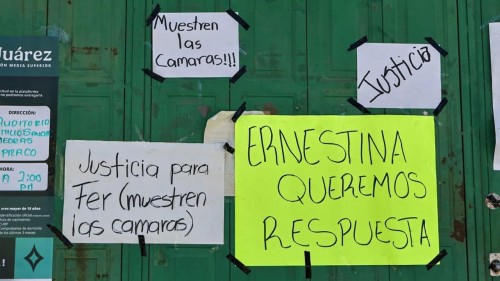 Juárez
IÓN MEDIA SUPERIOR
DIRECCIÓN:
HORA:
A 2:00
PM
Muestren
las
Camaras!!!
Justicia
Justicia para
Fer (muestren
las camaras)
ERNESTINA
QUEREMOS
RESPUESTA